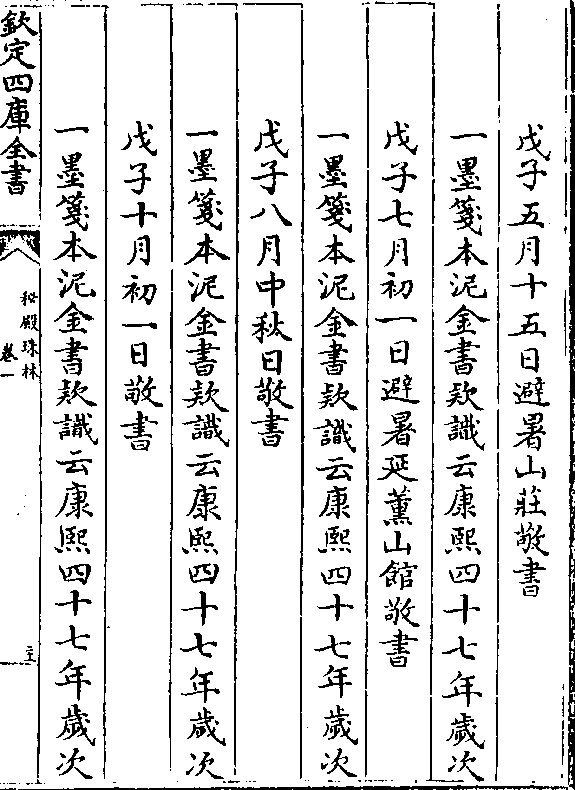 戊子五月十五日避暑山莊敬書
一墨箋本泥金書款識云康熙四十七年歲次
戊子七月初一日避暑延薰山館敬書
一墨箋本泥金書款識云康熙四十七年歲次
戊子八月中秋日敬書
一墨箋本泥金書款識云康熙四十七年歲次
戊子十月初一日敬書
一墨箋本泥金書款識云康熙四十七年歲次
欽定四庫全書
秘殿珠林
卷一